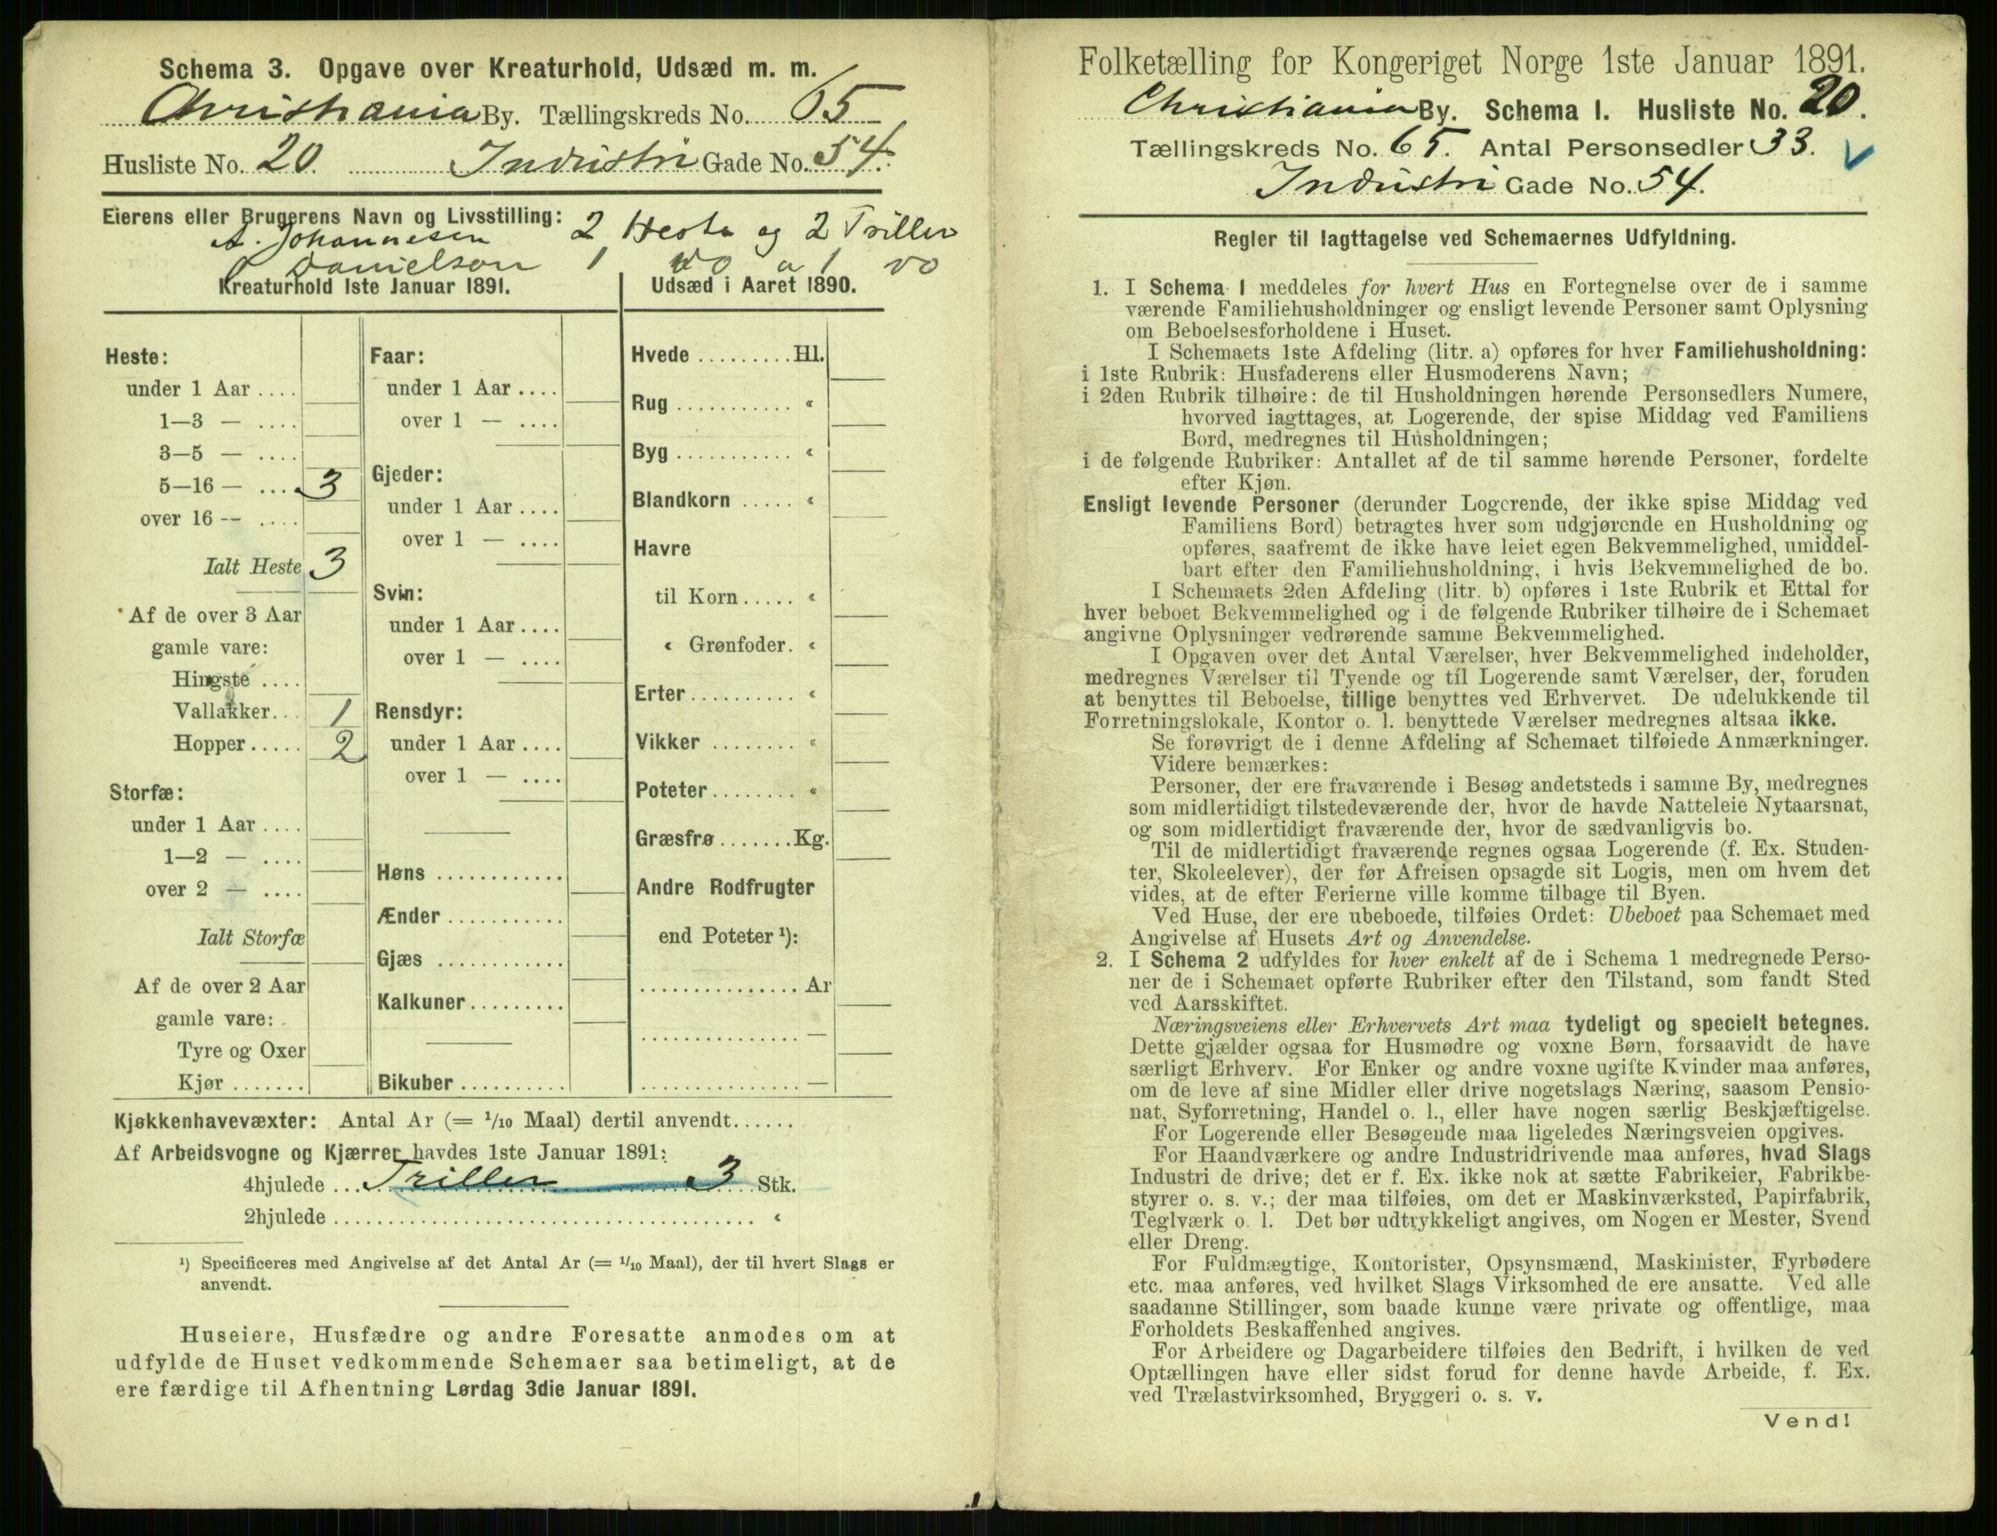 Schema 3. Opgave over Kreaturhold, Udsæd m. m.
Christiania By. Tællingskreds No. 65
Husliste No. 20. Industri Gade No. 54.
Eierens eller Brugerens Navn og Livsstilling: 2 Heste og 2 Triller
A. Johannesen
Danielson 1 do a 1 do
Kreaturhold 1ste Januar 1891.
Heste:
under 1 Aar ....
1—3 — ....
3—5 — ....
5—16 — .... 3
over 16 — ....
Ialt Heste 3
Af de over 3 Aar
gamle vare:
Hingste ....
Vallakker... 1
Hopper..... 2
Storfæ:
under 1 Aar ....
1—2 — ....
over 2 — ....
Ialt Storfæ
Af de over 2 Aar
gamle vare:
Tyre og Oxer
Kjør .......
Faar:
under 1 Aar ....
over 1 — ....
Gjeder:
under 1 Aar ....
over 1 — ....
Svin:
under 1 Aar ....
over 1 — ....
Rensdyr:
under 1 Aar ....
over 1 — ....
Høns ............
Ænder ...........
Gjæs ............
Kalkuner.........
Bikuber ..........
Udsæd i Aaret 1890.
Hvede .........Hl.
Rug ........... «
Byg ........... «
Blandkorn ..... «
Havre
til Korn..... «
« Grønfoder. «
Erter.......... «
Vikker ........ «
Poteter........ «
Græsfrø.......Kg.
Andre Rodfrugter
end Poteter ¹):
............... Ar
............... —
............... —
Kjøkkenhavevæxter: Antal Ar (= 1/10 Maal) dertil anvendt......
Af Arbeidsvogne og Kjærrer havdes 1ste Januar 1891:
4hjulede ... Triller 3 Stk.
2hjulede ........................................ «
¹) Specificeres med Angivelse af det Antal Ar (= 1/10 Maal), der til hvert Slags er
anvendt.
Huseiere, Husfædre og andre Foresatte anmodes om at
udfylde de Huset vedkommende Schemaer saa betimeligt, at de
ere færdige til Afhentning Lørdag 3die Januar 1891.
Folketælling for Kongeriget Norge 1ste Januar 1891.
Christiania By. Schema I. Husliste No. 20.
Tællingskreds No. 65. Antal Personsedler 33.
Industri Gade No. 54.
Regler til Iagttagelse ved Schemaernes Udfyldning.
1. I Schema I meddeles for hvert Hus en Fortegnelse over de i samme
værende Familiehusholdninger og ensligt levende Personer samt Oplysning
om Beboelsesforholdene i Huset.
I Schemaets 1ste Afdeling (litr. a) opføres for hver Familiehusholdning:
i 1ste Rubrik: Husfaderens eller Husmoderens Navn;
i 2den Rubrik tilhøire: de til Husholdningen hørende Personsedlers Numere,
hvorved iagttages, at Logerende, der spise Middag ved Familiens
Bord, medregnes til Husholdningen;
i de følgende Rubriker: Antallet af de til samme hørende Personer, fordelte
efter Kjøn.
Ensligt levende Personer (derunder Logerende, der ikke spise Middag ved
Familiens Bord) betragtes hver som udgjørende en Husholdning og
opføres, saafremt de ikke have leiet egen Bekvemmelighed, umiddel-
bart efter den Familiehusholdning, i hvis Bekvemmelighed de bo.
I Schemaets 2den Afdeling (litr. b) opføres i 1ste Rubrik et Ettal for
hver beboet Bekvemmelighed og i de følgende Rubriker tilhøire de i Schemaet
angivne Oplysninger vedrørende samme Bekvemmelighed.
I Opgaven over det Antal Værelser, hver Bekvemmelighed indeholder,
medregnes Værelser til Tyende og til Logerende samt Værelser, der, foruden
at benyttes til Beboelse, tillige benyttes ved Erhvervet. De udelukkende til
Forretningslokale, Kontor o. l. benyttede Værelser medregnes altsaa ikke.
Se forøvrigt de i denne Afdeling af Schemaet tilføiede Anmærkninger.
Videre bemærkes:
Personer, der ere fraværende i Besøg andetsteds i samme By, medregnes
som midlertidigt tilstedeværende der, hvor de havde Natteleie Nytaarsnat,
og som midlertidigt fraværende der, hvor de sædvanligvis bo.
Til de midlertidigt fraværende regnes ogsaa Logerende (f. Ex. Studen-
ter, Skoleelever), der før Afreisen opsagde sit Logis, men om hvem det
vides, at de efter Ferierne ville komme tilbage til Byen.
Ved Huse, der ere ubeboede, tilføies Ordet: Ubeboet paa Schemaet med
Angivelse af Husets Art og Anvendelse.
2. I Schema 2 udfyldes for hver enkelt af de i Schema 1 medregnede Perso-
ner de i Schemaet opførte Rubriker efter den Tilstand, som fandt Sted
ved Aarsskiftet.
Næringsveiens eller Erhvervets Art maa tydeligt og specielt betegnes.
Dette gjælder ogsaa for Husmødre og voxne Børn, forsaavidt de have
særligt Erhverv. For Enker og andre voxne ugifte Kvinder maa anføres,
om de leve af sine Midler eller drive nogetslags Næring, saasom Pensio-
nat, Syforretning, Handel o. l., eller have nogen særlig Beskjæftigelse.
For Logerende eller Besøgende maa ligeledes Næringsveien opgives.
For Haandværkere og andre Industridrivende maa anføres, hvad Slags
Industri de drive; det er f. Ex. ikke nok at sætte Fabrikeier, Fabrikbe-
styrer o. s. v.; der maa tilføies, om det er Maskinværksted, Papirfabrik,
Teglværk o. l. Det bør udtrykkeligt angives, om Nogen er Mester, Svend
eller Dreng.
For Fuldmægtige, Kontorister, Opsynsmænd, Maskinister, Fyrbødere
etc. maa anføres, ved hvilket Slags Virksomhed de ere ansatte. Ved alle
saadanne Stillinger, som baade kunne være private og offentlige, maa
Forholdets Beskaffenhed angives.
For Arbeidere og Dagarbeidere tilføies den Bedrift, i hvilken de ved
Optællingen have eller sidst forud for denne havde Arbeide, f. Ex.
ved Trælastvirksomhed, Bryggeri o. s. v.
Vend!